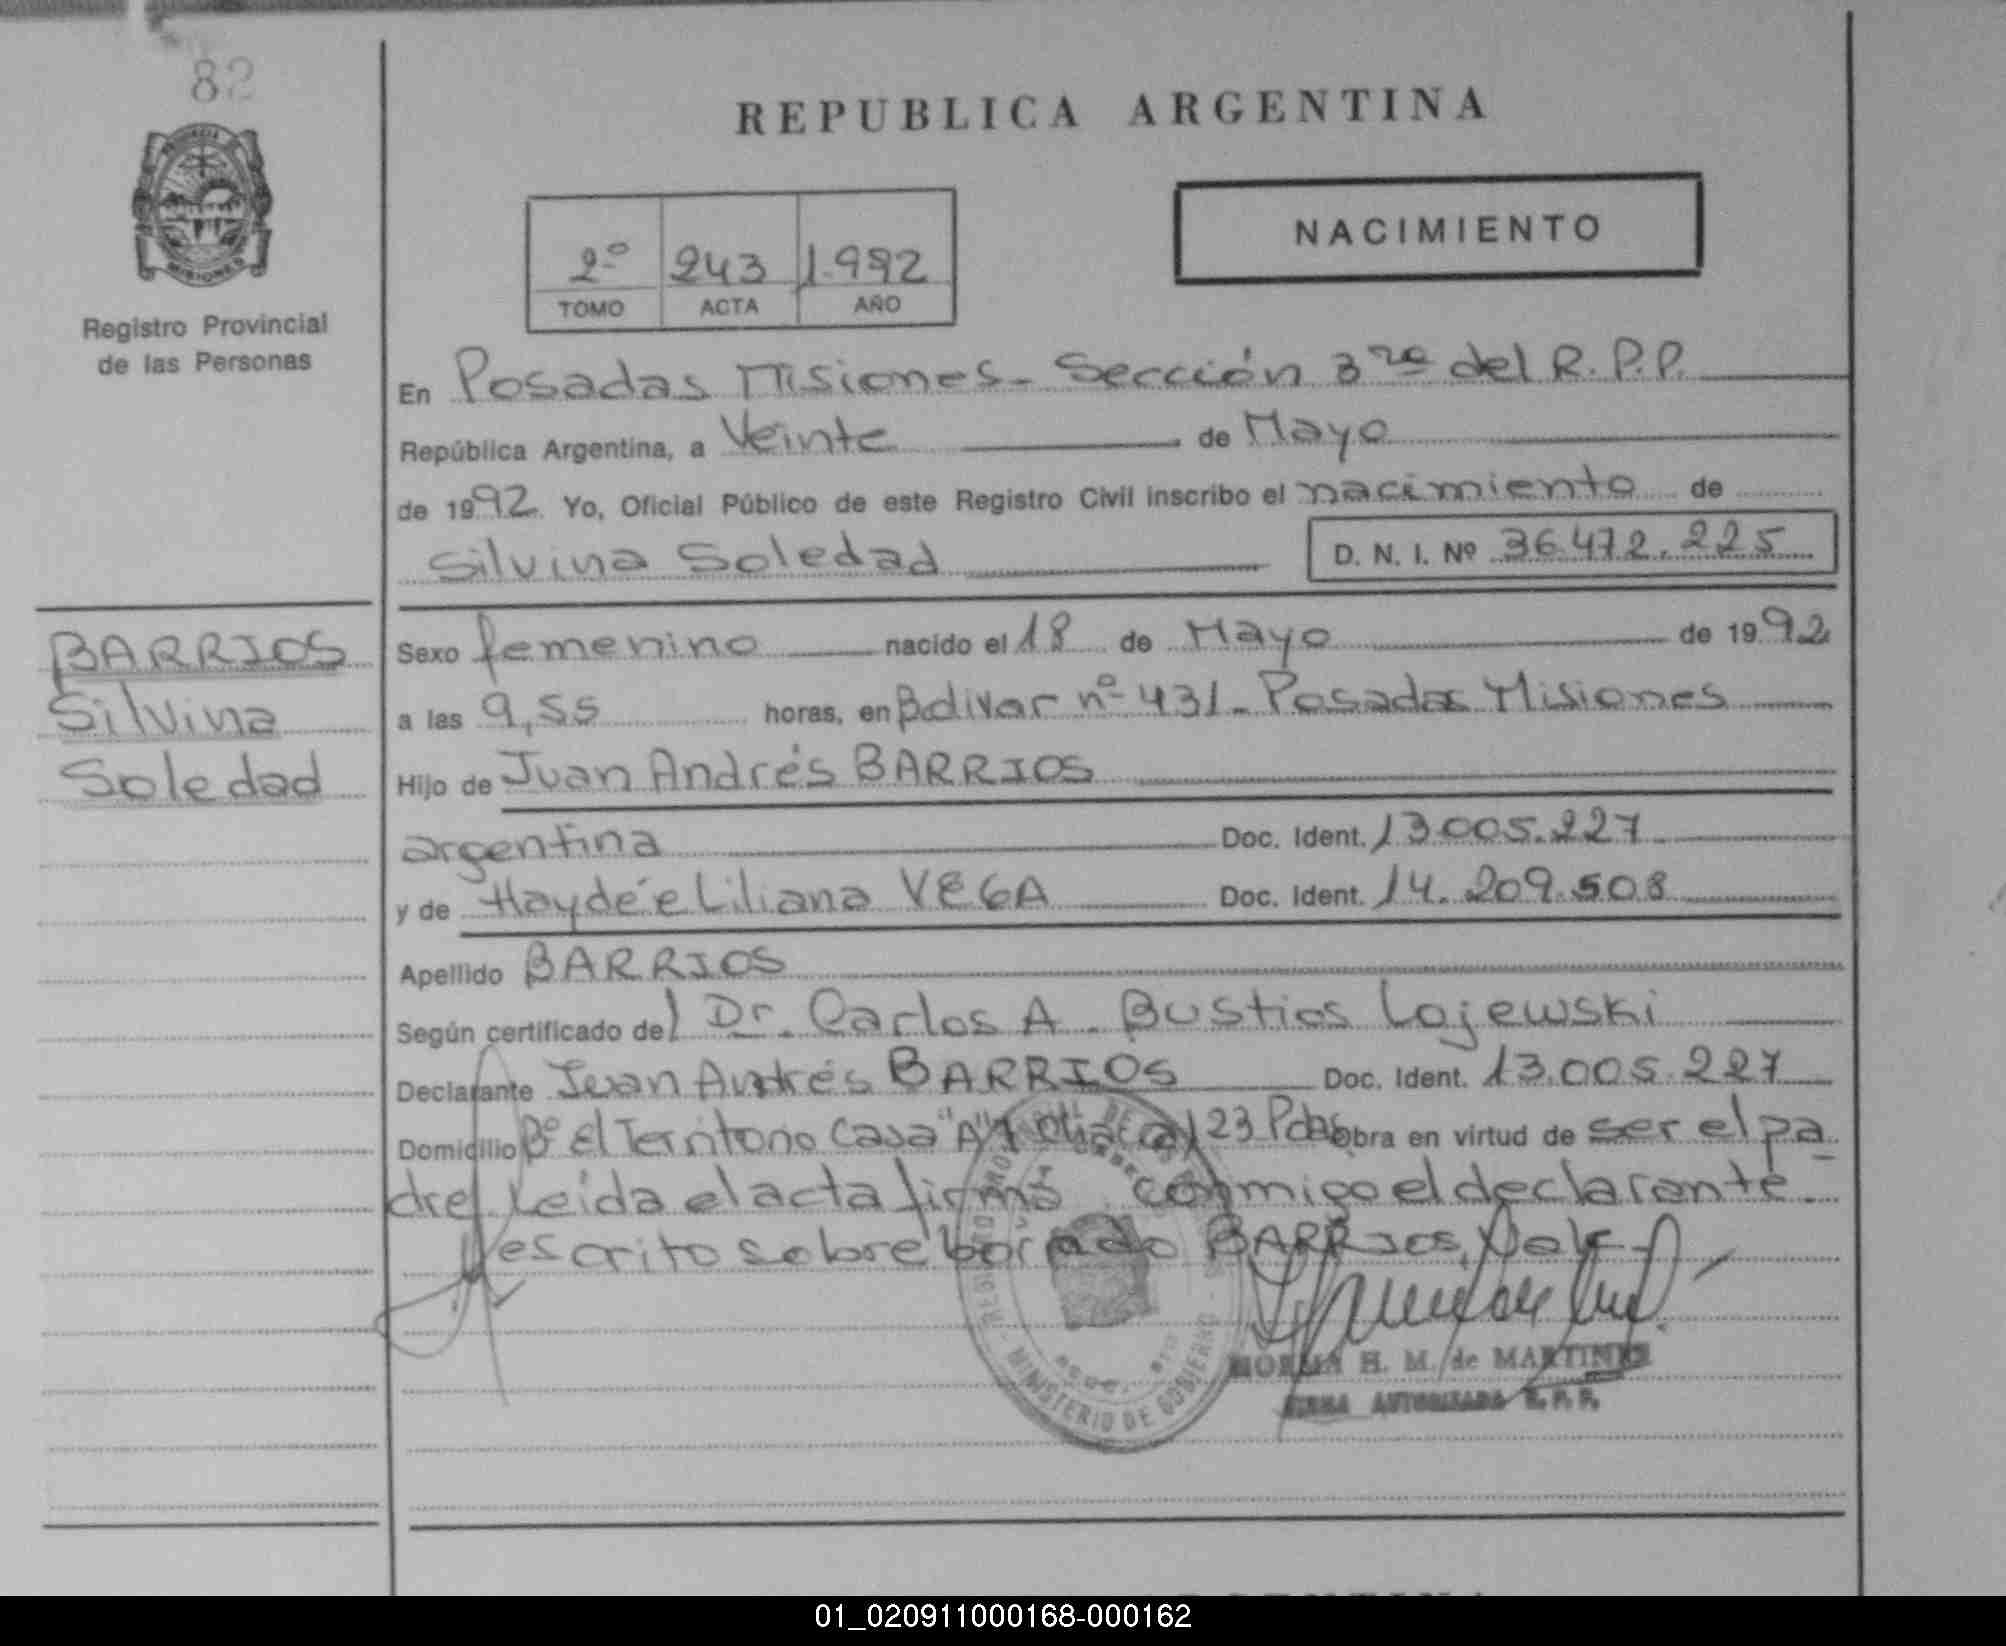 82
REPUBLICA ARGENTINA
NACIMIENTO
2º 243 1.992
TOMO ACTA AÑO
MISIONES
Registro Provincial
de las Personas
En Posadas Misiones - Sección 3ra del R.P.P.
República Argentina, a Veinte de Mayo
de 1992. Yo, Oficial Público de este Registro Civil inscribo el nacimiento de
Silvina Soledad D. N. I. Nº 36.472.225
BARRIOS
Silvina
Soledad
Sexo femenino nacido el 18 de Mayo de 1992
a las 9,55 horas, en Bolivar nº 431 - Posadas Misiones
Hijo de Juan Andrés BARRIOS
argentina Doc. Ident. 13.005.227
y de Haydée Liliana VEGA Doc. Ident. 14.209.508
Apellido BARRIOS
Según certificado del Dr. Carlos A. Bustios Lojewski
Declarante Juan Andrés BARRIOS Doc. Ident. 13.005.227
Domicilio Bº El Territorio Casa "A" 23 Pdas Obra en virtud de ser el pa
dre Leída el acta firma conmigo el declarante.
escrito sobre borrado BARRIOS, Vale
MINISTERIO DE GOBIERNO
NORMA H. M. de MARTINEZ
FIRMA AUTORIZADA R. P. P.
01_020911000168-000162